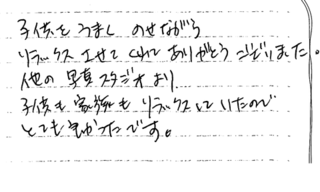 子供をうまくのせながら
リラックスさせてくれてありがとうございました。
他の写真スタジオより
子供も家族もリラックスしていたので
とても良かったです。